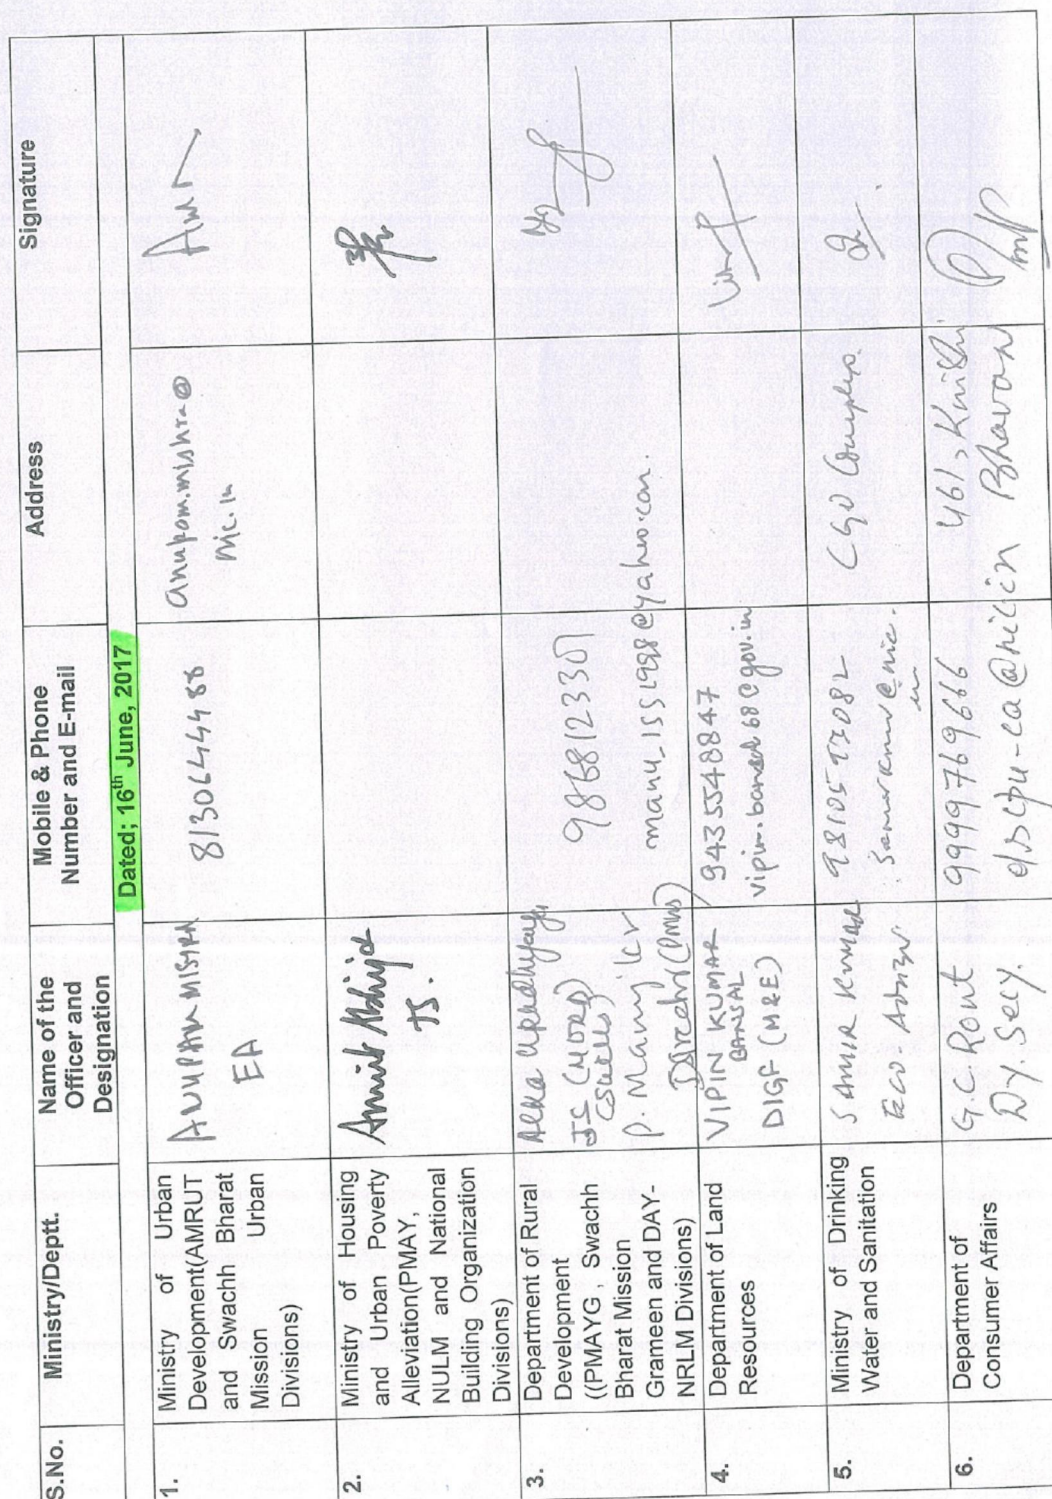 S.No.
Ministry/Deptt.
Name of the
Officer and
Designation
Mobile & Phone
Number and E-mail
Address
Signature
Dated; 16th June, 2017
1.
Ministry of Urban
Development(AMRUT
and Swachh Bharat
Mission Urban
Divisions)
ANUPAM MISHRA
EA
8130644488
anupam.mishra@
nic.in
2.
Ministry of Housing
and Urban Poverty
Alleviation(PMAY,
NULM and National
Building Organization
Divisions)
Amit
JS.
3.
Department of Rural
Development
((PMAYG, Swachh
Bharat Mission
Grameen and DAY-
NRLM Divisions)
Alka Upadhyaya
JS
(Skills)
P. Manoj
Director
9868123307
manu_iss1998@yahoo.com.
4.
Department of Land
Resources
VIPIN KUMAR
BANSAL
DIGF (M&E)
9435548847
vipin.bansal68@gov.in
5.
Ministry of Drinking
Water and Sanitation
SAMIR KUMAR
Eco Adviser
samirkumar@nic.
in
CGO Complex
6.
Department of
Consumer Affairs
G.C. Rout
Dy Secy.
9999769666
dscpu-ca@nic.in
461, Krishi
Bhavan